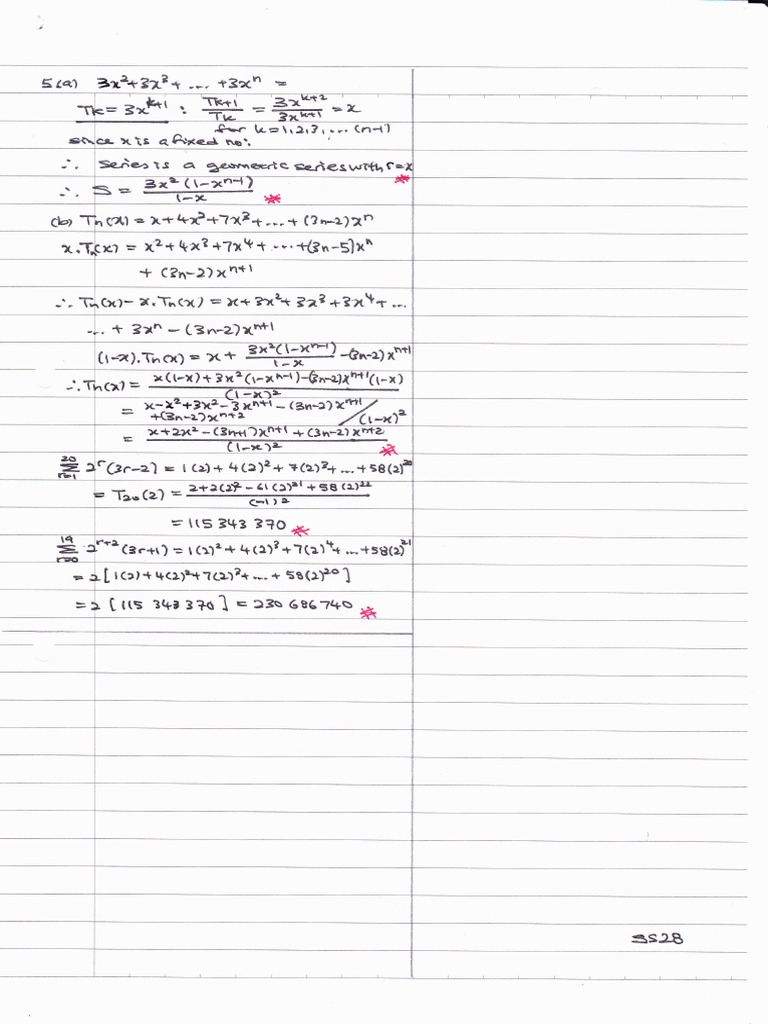 5(a) 3x²+3x³+ ... +3xⁿ =
Tk = 3x^(k+1) : T(k+1)/Tk = 3x^(k+2)/3x^(k+1) = x
for k=1,2,3,...(n-1)
since x is a fixed no:
∴ series is a geometric series with r=x
∴ S = 3x²(1-x^(n-1))/(1-x)
(b) Tn(x) = x+4x²+7x³+...+(3n-2)xⁿ
x.Tn(x) = x²+4x³+7x⁴+...+(3n-5)xⁿ
+ (3n-2)x^(n+1)
∴ Tn(x)-x.Tn(x) = x+3x²+3x³+3x⁴+...
...+ 3xⁿ - (3n-2)x^(n+1)
(1-x).Tn(x) = x + 3x²(1-x^(n-1))/(1-x) - (3n-2)x^(n+1)
∴ Tn(x) = (x(1-x)+3x²(1-x^(n-1))-(3n-2)x^(n+1)(1-x))/(1-x)²
= x-x²+3x²-3x^(n+1)-(3n-2)x^(n+1)
+(3n-2)x^(n+2) /(1-x)²
= (x+2x²-(3n+1)x^(n+1)+(3n-2)x^(n+2))/(1-x)²
20∑r=1 2^r(3r-2) = 1(2)+4(2)²+7(2)³+...+58(2)^20
= T20(2) = (2+2(2)²-61(2)^21+58(2)^22)/(-1)²
= 115 343 370
19∑r=0 2^(r+2)(3r+1) = 1(2)²+4(2)³+7(2)⁴+...+58(2)^21
= 2[1(2)+4(2)²+7(2)³+...+58(2)^20]
= 2[115 343 370] = 230 686 740
SS28